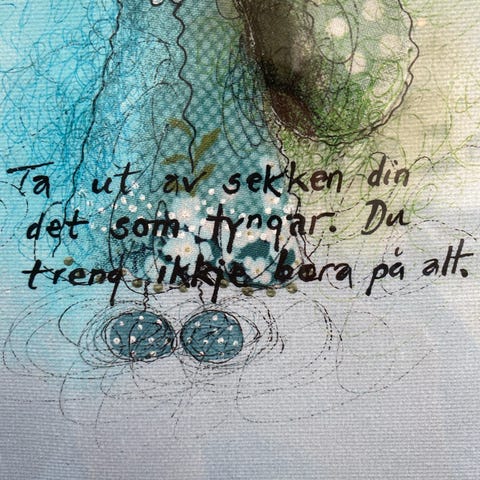 Ta ut av sekken din
det som tyngar. Du
treng ikkje bera på alt.